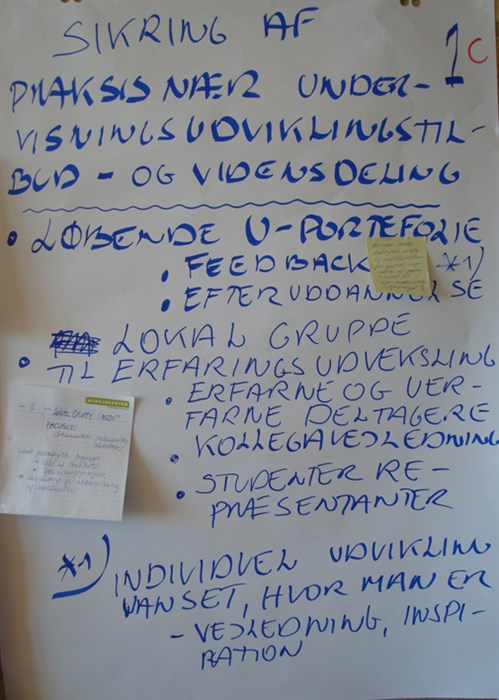 SIKRING AF
1C
PRAKSISNÆR UNDER-
VISNINGSUDVIKLINGSTIL-
BUD - OG VIDENSDELING
• LØBENDE U-PORTEFOLIE
• FEEDBACK *1)
• EFTERUDDANNELSE
LOKAL GRUPPE
• TIL ERFARINGSUDVEKSLING
• ERFARNE OG UER-
FARNE DELTAGERE
• KOLLEGAVEJLEDNING
• STUDENTER RE-
PRÆSENTANTER
*1) INDIVIDUEL UDVIKLING
UANSET, HVOR MAN ER
- VEJLEDNING, INSPI-
RATION